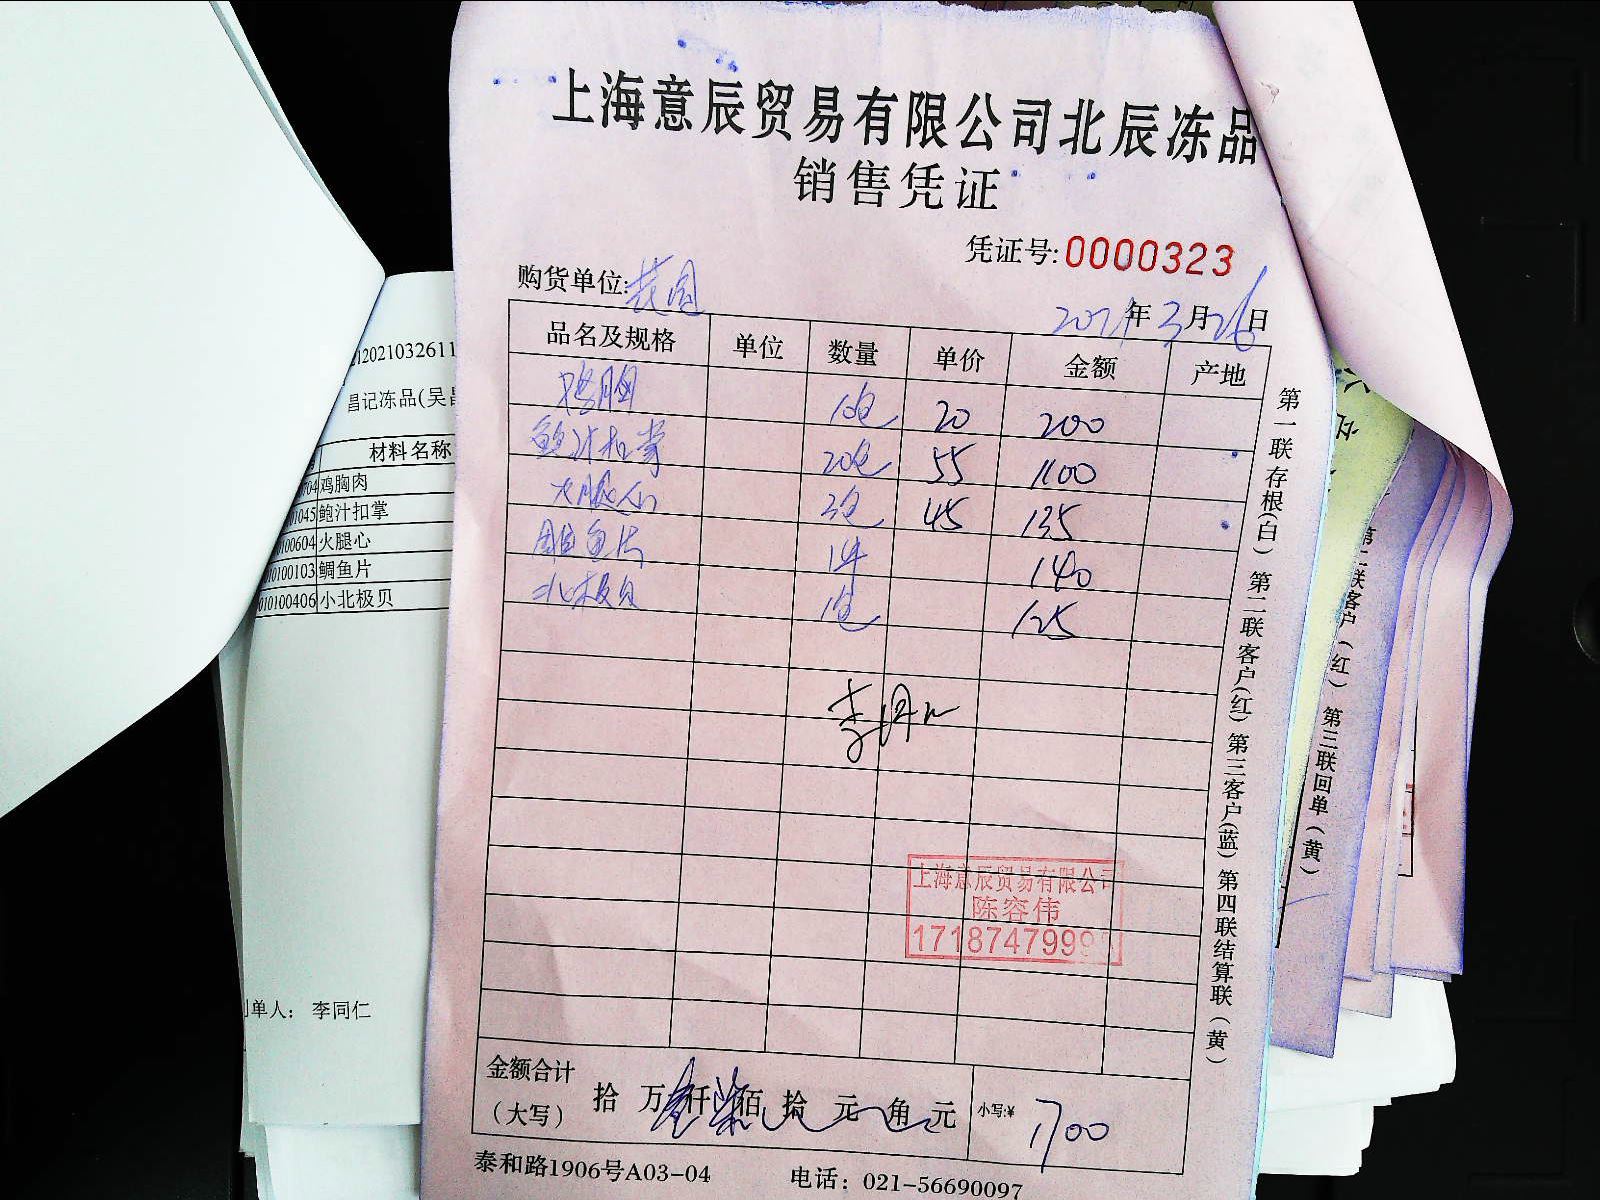 上海意辰贸易有限公司北辰冻品
销售凭证
凭证号:0000323
购货单位:花园
2021年3月26日
品名及规格 单位 数量 单价 金额 产地
鸡胸 10包 20 200
鲍汁扣掌 20包 55 1100
火腿心 3包 45 135
鲷鱼片 1件 140
北极贝 1包 125
李同仁
上海意辰贸易有限公司
陈容伟
1718747999
金额合计
(大写) 拾 万壹仟柒佰 拾 元 角 元 小写:¥ 1700
泰和路1906号A03-04 电话：021-56690097
第一联存根(白) 第二联客户(红) 第三客户(蓝) 第四联结算联(黄)
1202103261
昌记冻品(吴
材料名称
704 鸡胸肉
01045 鲍汁扣掌
100604 火腿心
010100103 鲷鱼片
010100406 小北极贝
单人： 李同仁
第二联客户(红) 第三联回单(黄)